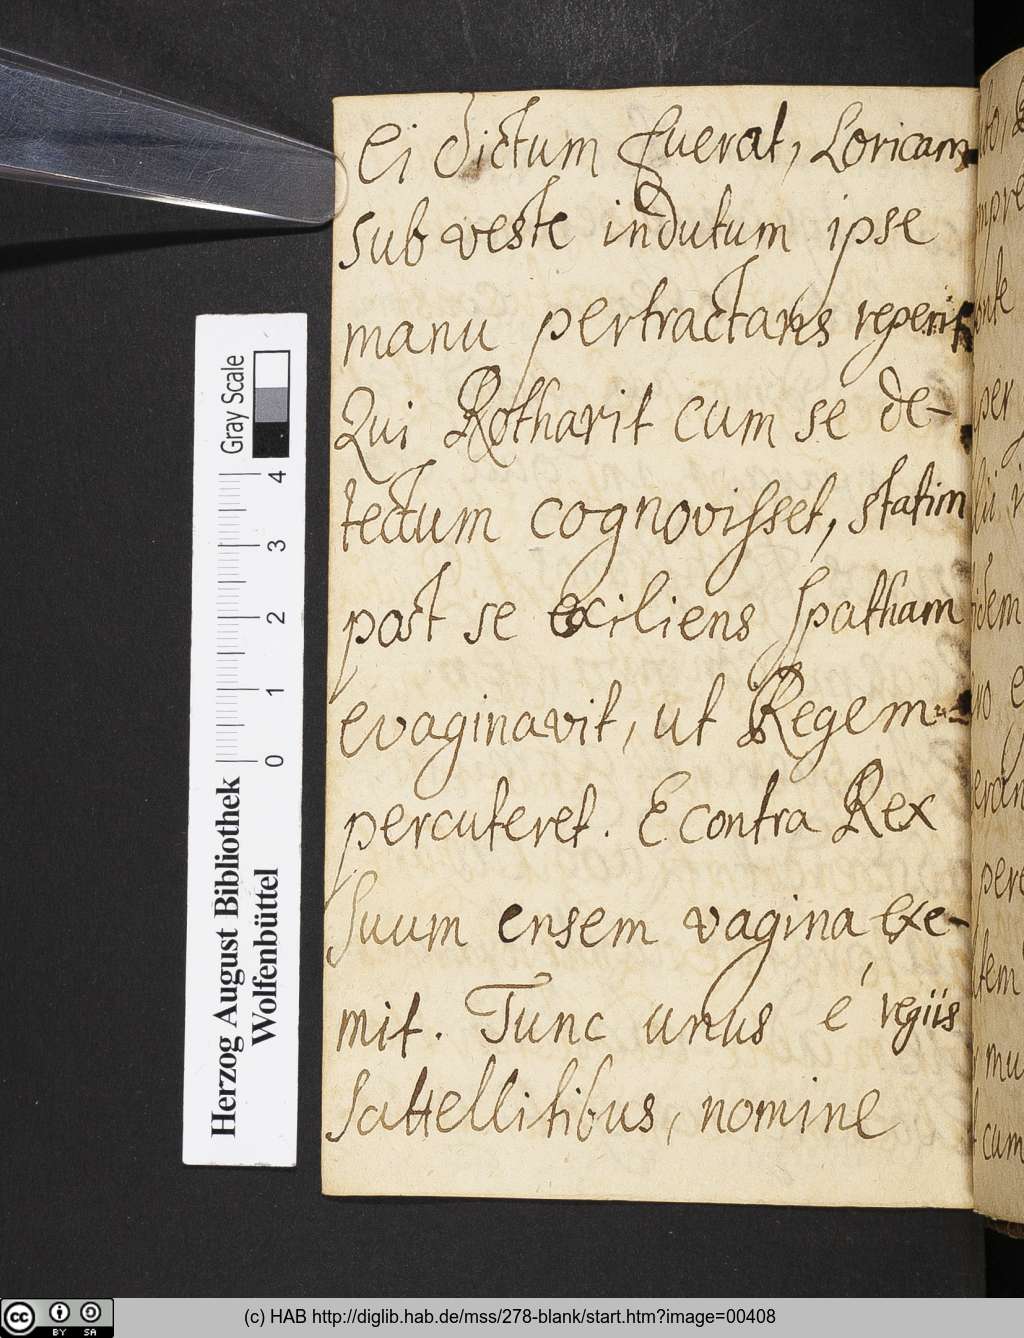 Ei dictum fuerat, Loricam
sub veste indutum ipse
manu pertractans reperit
Qui Rotharit cum se de-
tectum cognovisset, statim
post se exiliens spatham
evaginavit, ut Regem
percuteret. E contra Rex
suum ensem vagina exe-
mit. Tunc unus é regiis
sattellitibus, nomine
per
cum
Gray Scale
4
3
2
1
0
Herzog August Bibliothek
Wolfenbüttel
cc BY SA
(c) HAB http://diglib.hab.de/mss/278-blank/start.htm?image=00408